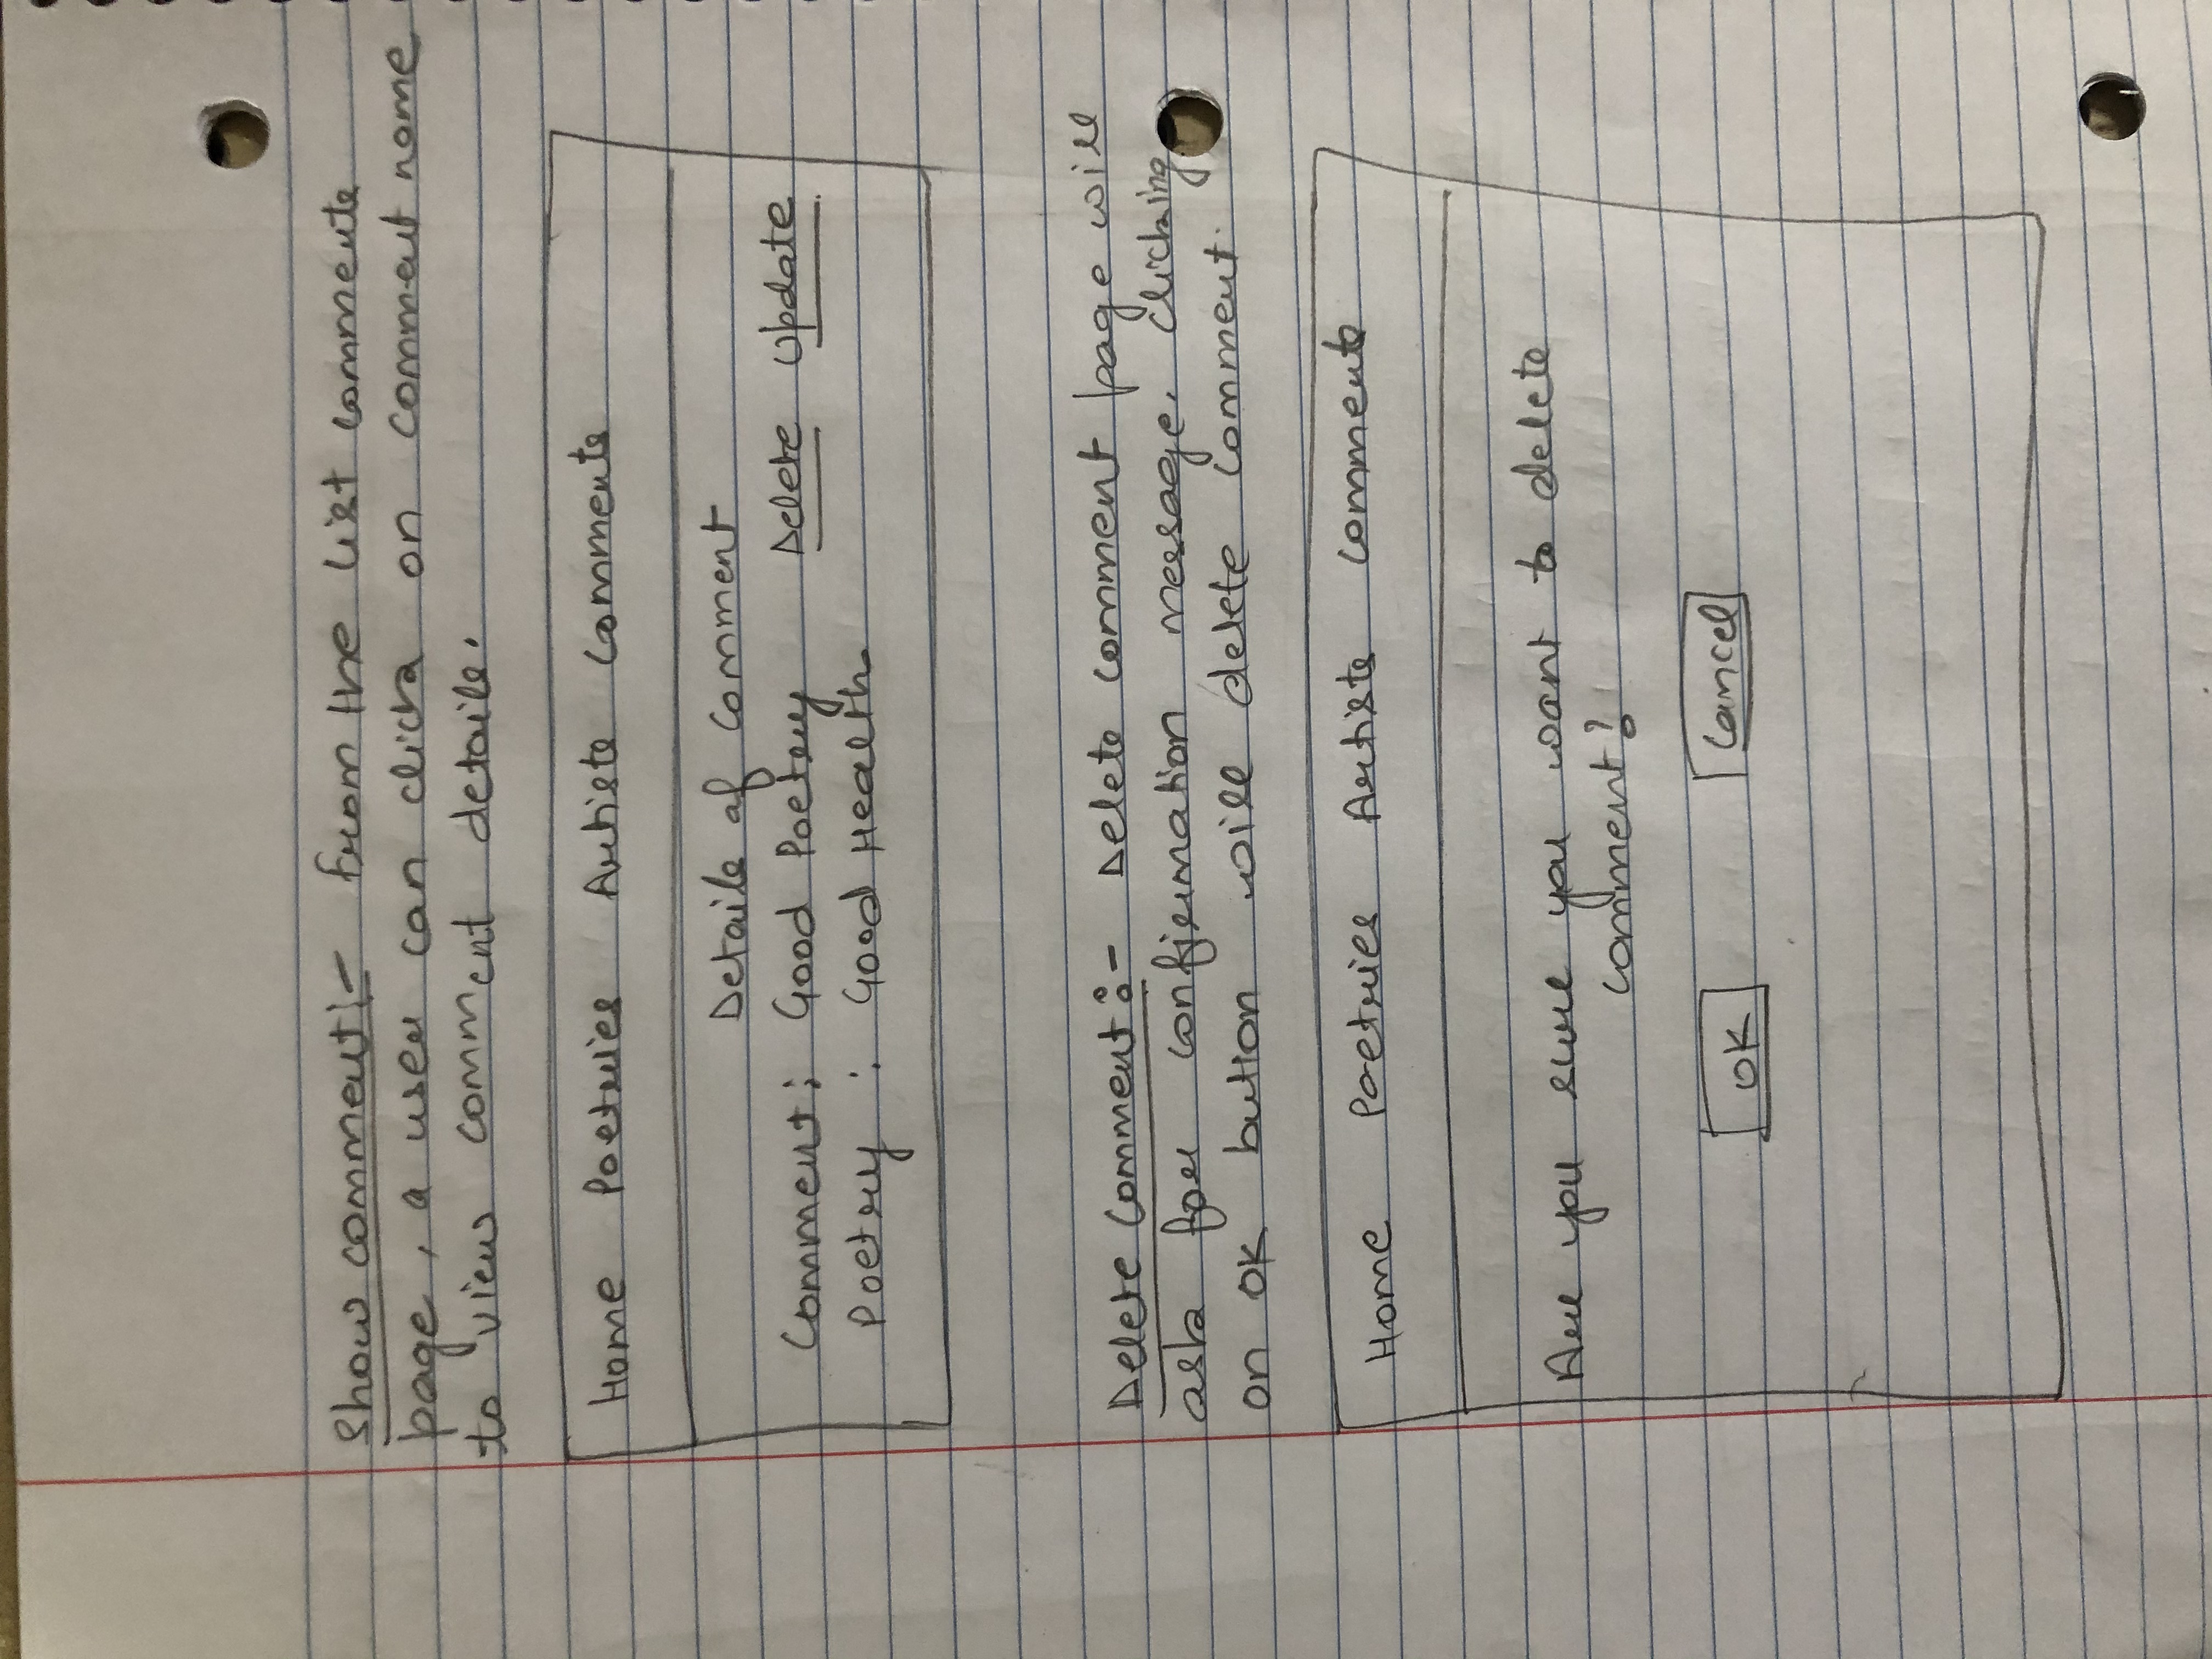 Show comment:- From the list comments
page, a user can click on comment name
to view comment details.
Home Poetries Artists Comments
Details of Comment
Comment: Good Poetry Delete Update
Poetry : Good Health
Delete Comment:- Delete comment page will
ask for confirmation message. Clicking
on OK button will delete comment.
Home Poetries Artists Comments
Are you sure you want to delete
comment?
OK Cancel